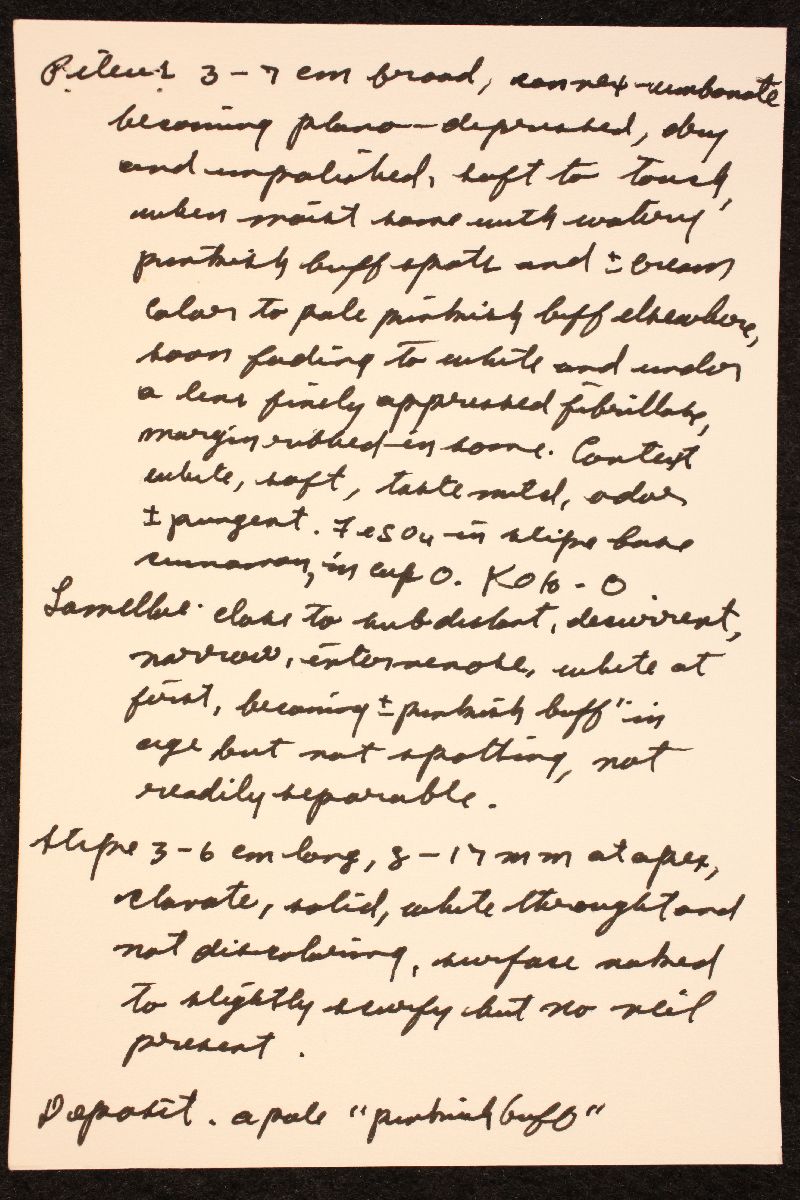 Pileus 3-7 cm broad, convex-umbonate
becoming plano-depressed, dry
and unpolished, soft to touch,
when moist some with watery
pinkish buff spots and ± cream
color to pale pinkish buff elsewhere,
soon fading to white and under
a lens finely appressed fibrillose,
margin ribbed in some. Context
white, soft, taste mild, odor
± pungent. FeSO4 in stipe base
cinnamon, in cap O. KOH - O
Lamellae close to subdistant, decurrent,
narrow, intervenose, white at
first, becoming ± pinkish buff" in
age but not spotting, not
readily separable.
Stipe 3-6 cm long, 8-17 mm at apex,
clavate, solid, white throught and
not discoloring, surface naked
to slightly scurfy but no veil
present.
Deposit. a pale "pinkish buff"